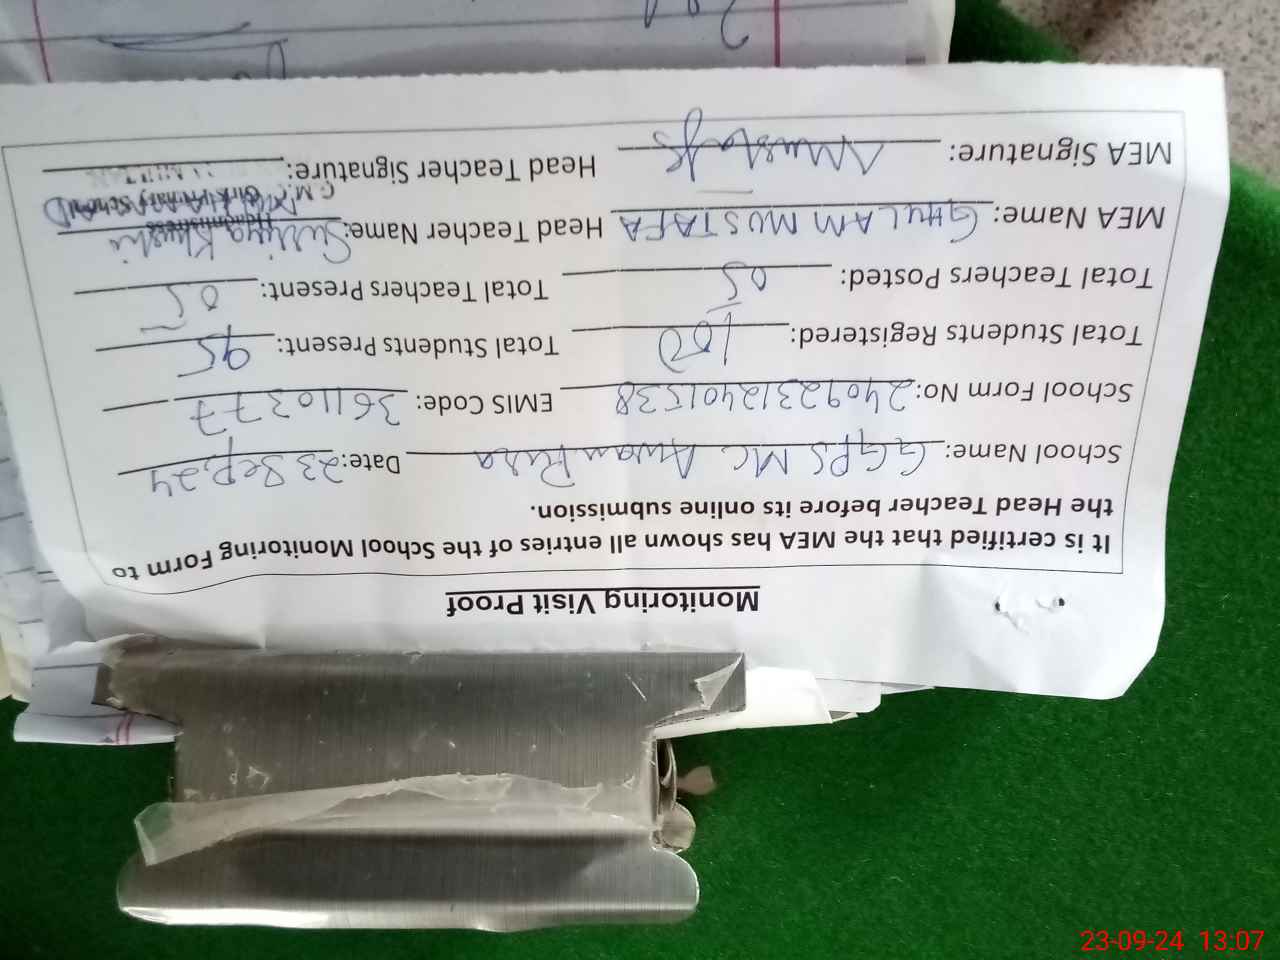 Monitoring Visit Proof
It is certified that the MEA has shown all entries of the School Monitoring Form to
the Head Teacher before its online submission.
School Name: GGPS MC Awan Pura Date: 23 Sep, 24
School Form No: 24092312401538 EMIS Code: 36110377
Total Students Registered: 100 Total Students Present: 95
Total Teachers Posted: 05 Total Teachers Present: 05
MEA Name: GHULAM MUSTAFA Head Teacher Name:
Headmistress
Girls Primary School
MEA Signature: Mustafa Head Teacher Signature:
23-09-24 13:07